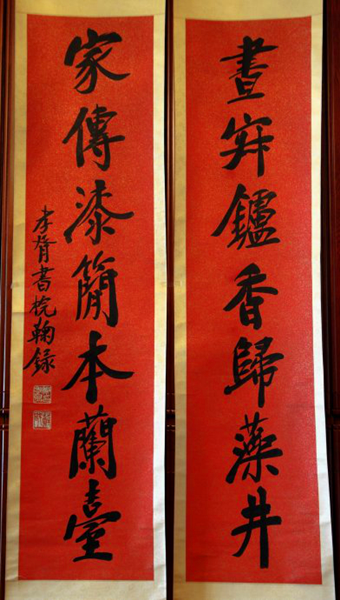 晝鑪香歸藻井
家傳漆簡本蘭臺
孝胥書梡鞠錄